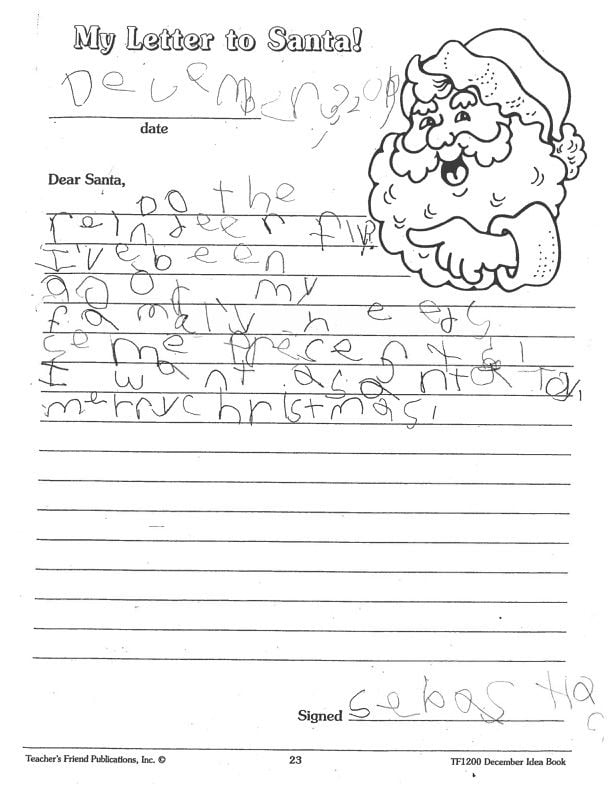 My Letter to Santa!
Decembern,
date
Dear Santa,
Do the
reindeer fly?
I've been
good my
family needs
some presents!
I want a santa Toy,
merry christmas!
Signed Sebas
Teacher's Friend Publications, Inc. © 23 TF1200 December Idea Book